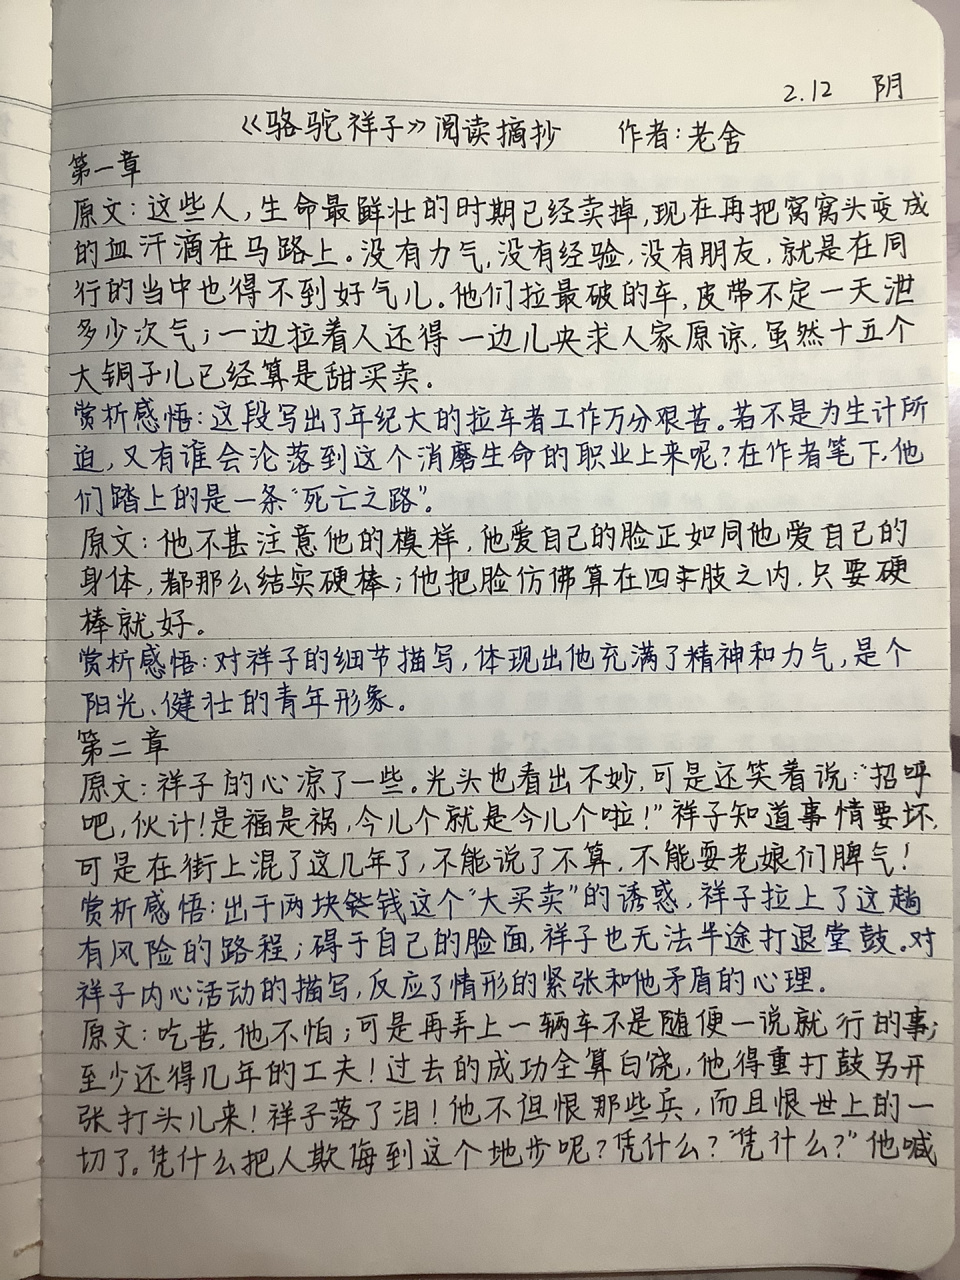 2.12 阴
《骆驼祥子》阅读摘抄 作者:老舍
第一章
原文:这些人,生命最鲜壮的时期已经卖掉,现在再把窝窝头变成
的血汗滴在马路上。没有力气,没有经验,没有朋友,就是在同
行的当中也得不到好气儿。他们拉最破的车,皮带不定一天泄
多少次气;一边拉着人还得一边儿央求人家原谅,虽然十五个
大铜子儿已经算是甜买卖.
赏析感悟:这段写出了年纪大的拉车者工作万分艰苦。若不是为生计所
迫,又有谁会沦落到这个消磨生命的职业上来呢?在作者笔下,他
们踏上的是一条“死亡之路”。
原文:他不甚注意他的模样,他爱自己的脸正如同他爱自己的
身体,都那么结实硬棒;他把脸仿佛算在四肢之内,只要硬
棒就好。
赏析感悟:对祥子的细节描写,体现出他充满了精神和力气,是个
阳光、健壮的青年形象。
第二章
原文:祥子的心凉了一些。光头也看出不妙,可是还笑着说:“招呼
吧,伙计!是福是祸,今儿个就是今儿个啦!”祥子知道事情要坏,
可是在街上混了这几年了,不能说了不算,不能耍老娘们脾气!
赏析感悟:出于两块钱这个“大买卖”的诱惑,祥子拉上了这趟
有风险的路程;碍于自己的脸面,祥子也无法半途打退堂鼓。对
祥子内心活动的描写,反应了情形的紧张和他矛盾的心理.
原文:吃苦,他不怕;可是再弄上一辆车不是随便一说就行的事;
至少还得几年的工夫!过去的成功全算白饶,他得重打鼓另开
张打头儿来!祥子落了泪!他不但恨那些兵,而且恨世上的一
切了。凭什么把人欺侮到这个地步呢?凭什么?“凭什么?”他喊